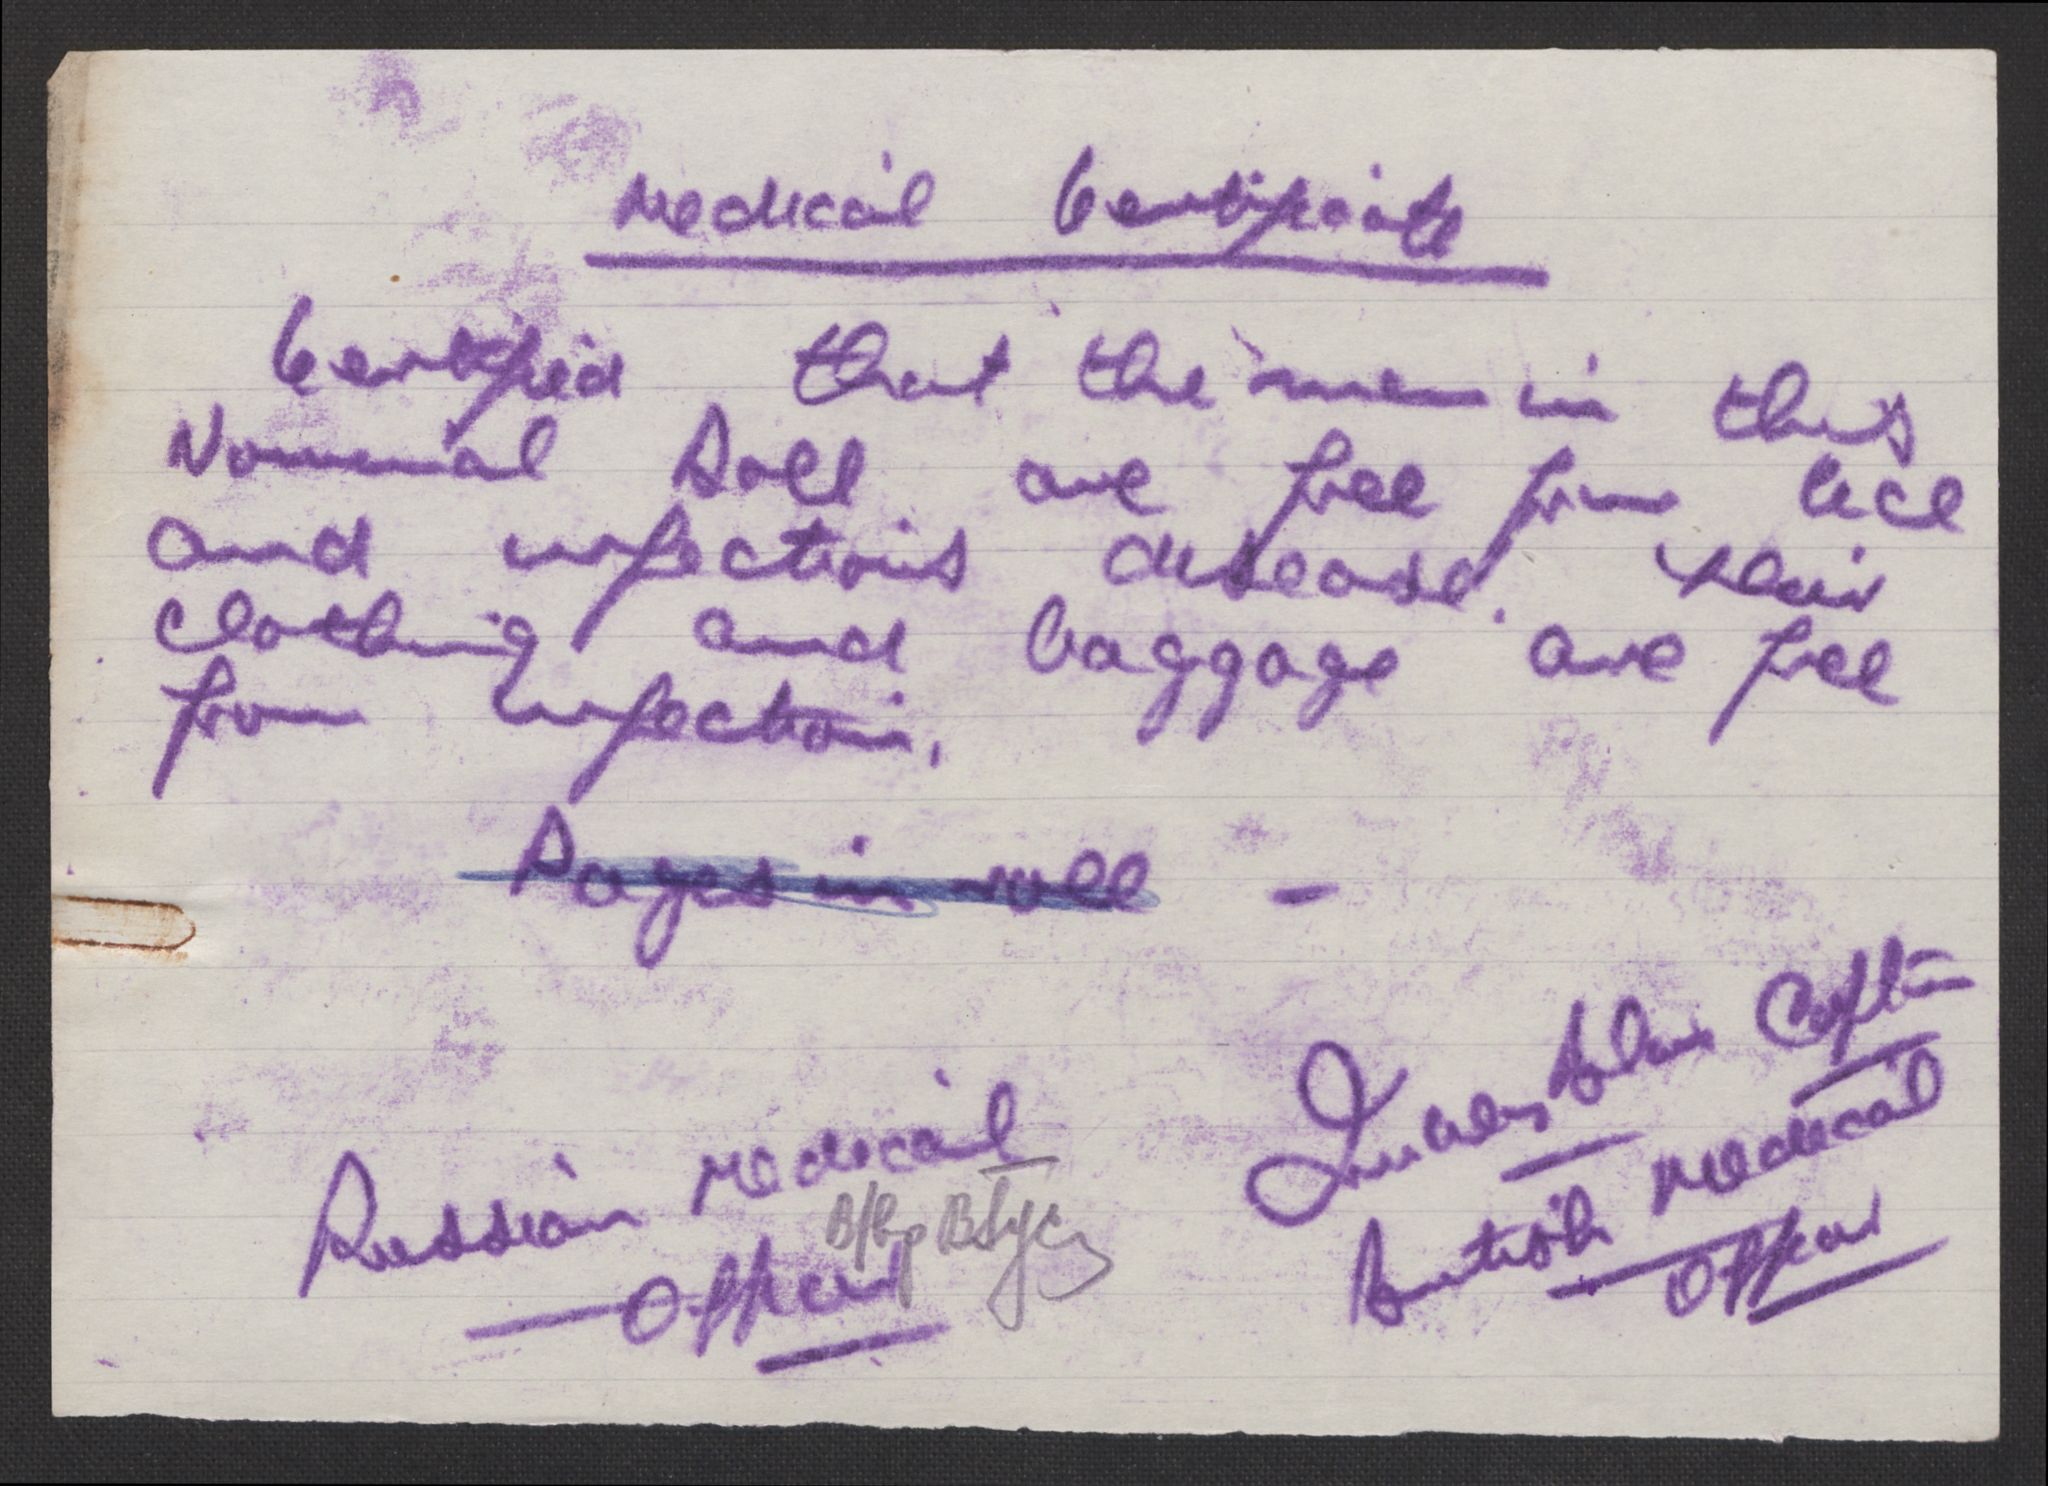 Medical Certificate
Certified that the men in this
Nominal Roll are free from lice
and infectious disease. Their
clothing and baggage are free
from infection.
Pages in roll -
Captain
Russian Medical
Officer
British Medical
Officer